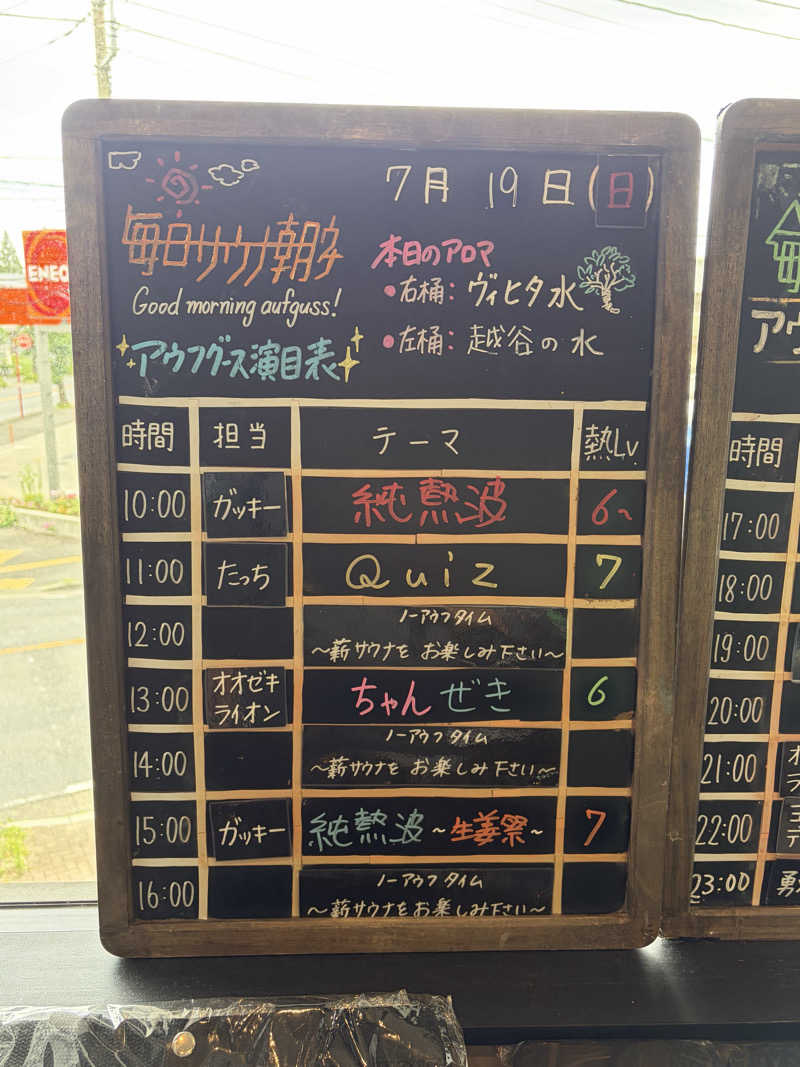 7月 19日(日)
毎日サウナ朝夕
Good morning aufguss!
アウフグース演目表
本日のアロマ
•右桶: ヴィヒタ水
•左桶: 越谷の水
時間 担当 テーマ 熱Lv
10:00 ガッキー 純熱波 6~
11:00 たっち Quiz 7
12:00 ノーアウフタイム
~薪サウナを お楽しみ下さい~
13:00 オオゼキ ライオン ちゃんぜき 6
14:00 ノーアウフタイム
~薪サウナを お楽しみ下さい~
15:00 ガッキー 純熱波~生姜祭~ 7
16:00 ノーアウフタイム
~薪サウナをお楽しみ下さい~
ENEO
毎
アウ
時間
17:00
18:00
19:00
20:00
21:00
22:00
23:00